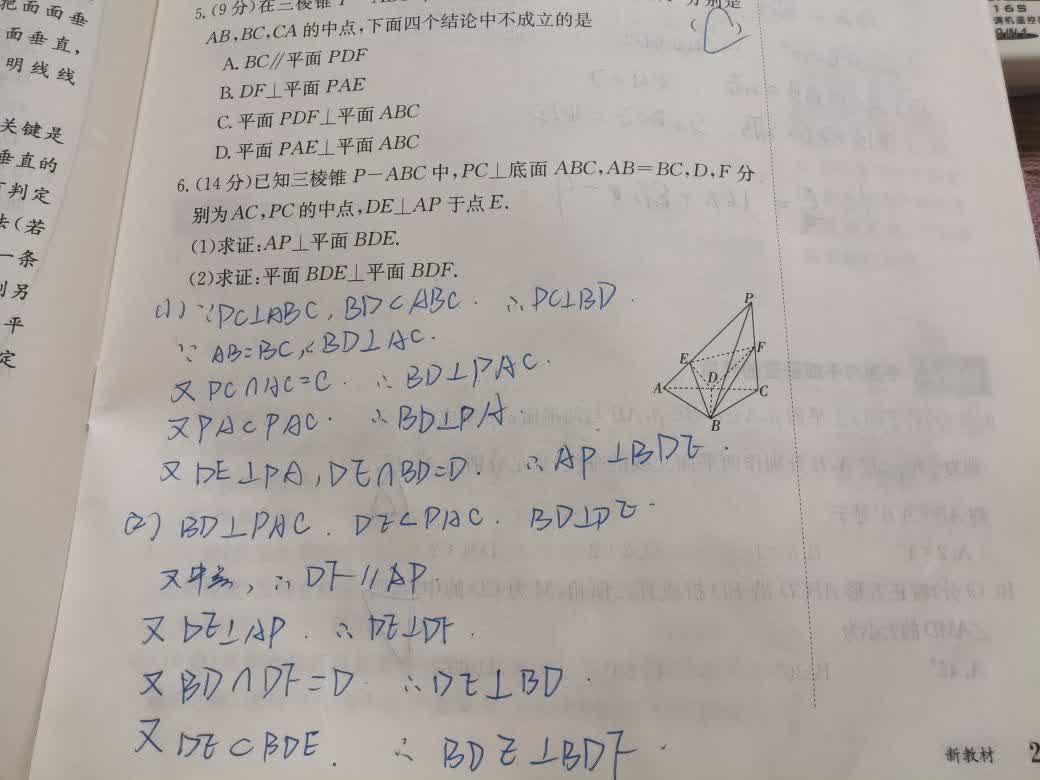 把面面垂
面垂直,
明线线
关键是
垂直的
判定
法(若
一条
别另
平
定
5.(9分)在三棱锥
AB,BC,CA的中点,下面四个结论中不成立的是 ( )
A. BC∥平面 PDF
B. DF⊥平面 PAE
C. 平面 PDF⊥平面 ABC
D. 平面 PAE⊥平面 ABC
6.(14分)已知三棱锥P-ABC中,PC⊥底面 ABC,AB=BC,D,F分
别为AC,PC的中点,DE⊥AP于点E.
(1)求证:AP⊥平面 BDE.
(2)求证:平面 BDE⊥平面 BDF.
(1) ∵PC⊥ABC, BD⊂ABC. ∴PC⊥BD.
∵ AB=BC, BD⊥AC.
又 PC∩AC=C. ∴ BD⊥PAC.
又PA⊂PAC. ∴BD⊥PA.
又 DE⊥PA, DE∩BD=D. ∴AP⊥BDE.
(2) BD⊥PAC. DE⊂PAC. BD⊥DE.
又中点, ∴ DF∥AP.
又 DE⊥AP. ∴DE⊥DF.
又 BD∩DF=D. ∴DE⊥BD.
又 DE⊂BDE. ∴ BDE⊥BDF.
P
E
F
D
A
C
B
新教材
165